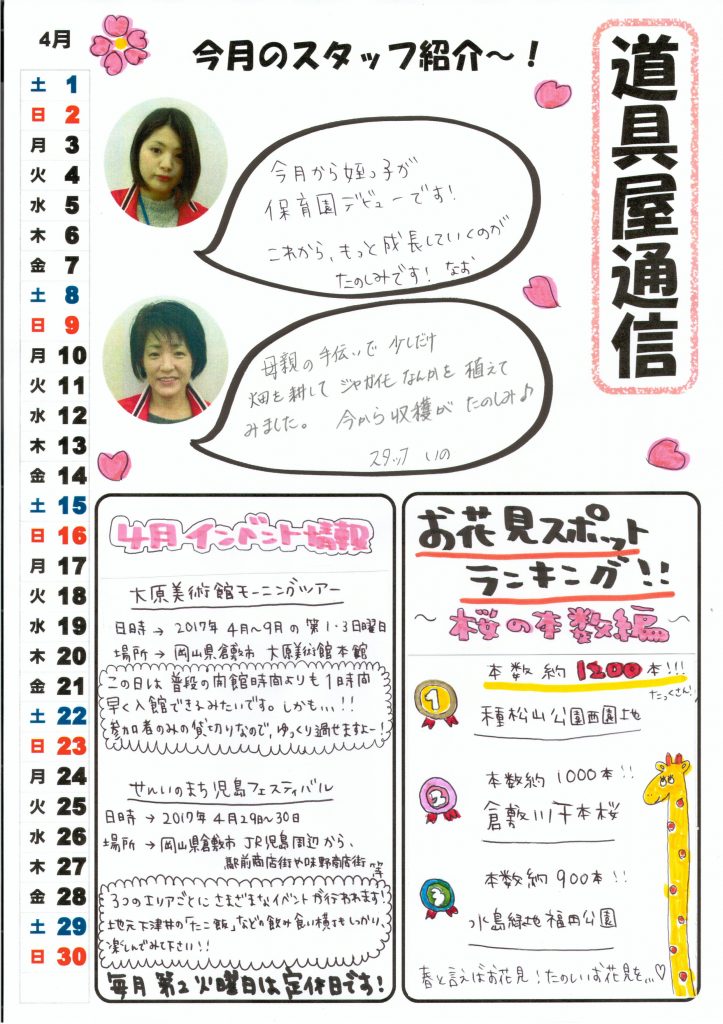 道具屋通信
4月
今月のスタッフ紹介～！
土 1
日 2
月 3
火 4
水 5
木 6
金 7
土 8
日 9
月 10
火 11
水 12
木 13
金 14
土 15
日 16
月 17
火 18
水 19
木 20
金 21
土 22
日 23
月 24
火 25
水 26
木 27
金 28
土 29
日 30
今月から姪っ子が
保育園デビューです！
これから、もっと成長していくのが
たのしみです！ なお
母親の手伝いで少しだけ
畑を耕して ジャガイモなんかを 植えて
みました。 今から収穫が たのしみ♪
スタッフ いの
4月インドント情報
大原美術館モーニングツアー
日時 → 2017年 4月～9月の 第1・3日曜日
場所 → 岡山県倉敷市 大原美術館本館
この日は 普段の開館時間よりも 1時間
早く入館できるみたいです。しかも...!!
参加者のみの貸し切りなので、ゆっくり過せますよー！
せんいのまち児島フェスティバル
日時 → 2017年 4月29日～30日
場所 → 岡山県倉敷市 JR児島周辺から、
駅前商店街や味野商店街 等
3つのエリアごとに さまざまなイベントが行われます！
地元下津井の「たこ飯」などの飲み食い横丁もしっかり、
楽しんでみて下さい!!
毎月 第2火曜日は定休日です！
お花見スポット
ランキング!!
～桜の本数編～
本数 約1200本!!!
たっくさん！
1
種松山公園西園地
本数約1000本!!
2
倉敷川千本桜
本数約900本!!
3
水島緑地福田公園
春と言えばお花見！たのしいお花見を...♡